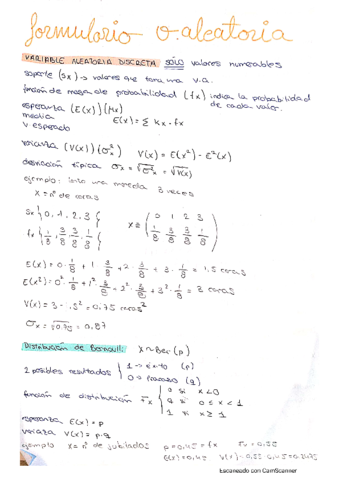 formulario v. aleatoria
VARIABLE ALEATORIA DISCRETA SÓLO valores numerables
soporte (Sx) → valores que toma una v.a.
función de masa de probabilidad (fx) indica la probabilidad
de cada valor.
esperanza (E(x)) (μx)
media
v esperado
E(x) = Σ kx · fx
varianza (V(x)) (σx²) V(x) = E(x²) - E²(x)
desviación típica σx = √σx² = √V(x)
ejemplo: lanzo una moneda 3 veces
X = nº de caras
Sx {0, 1, 2, 3}
fx {1/8, 3/8, 3/8, 1/8}
X ≡ (0 1 2 3
1/8 3/8 3/8 1/8)
E(x) = 0 · 1/8 + 1 · 3/8 + 2 · 3/8 + 3 · 1/8 = 1.5 caras
E(x²) = 0² · 1/8 + 1² · 3/8 + 2² · 3/8 + 3² · 1/8 = 3 caras
V(x) = 3 - 1.5² = 0.75 caras²
σx = √0.75 = 0.87
Distribución de Bernoulli: X ~ Ber (p)
2 posibles resultados { 1 → éxito (p)
0 → fracaso (q)
función de distribución Fx { 0 si x < 0
q si 0 ≤ x < 1
1 si x ≥ 1
esperanza E(x) = p
varianza V(x) = p·q
ejemplo X = nº de jubilados p = 0.45 = fx
E(x) = 0.45
Escaneado con CamScanner